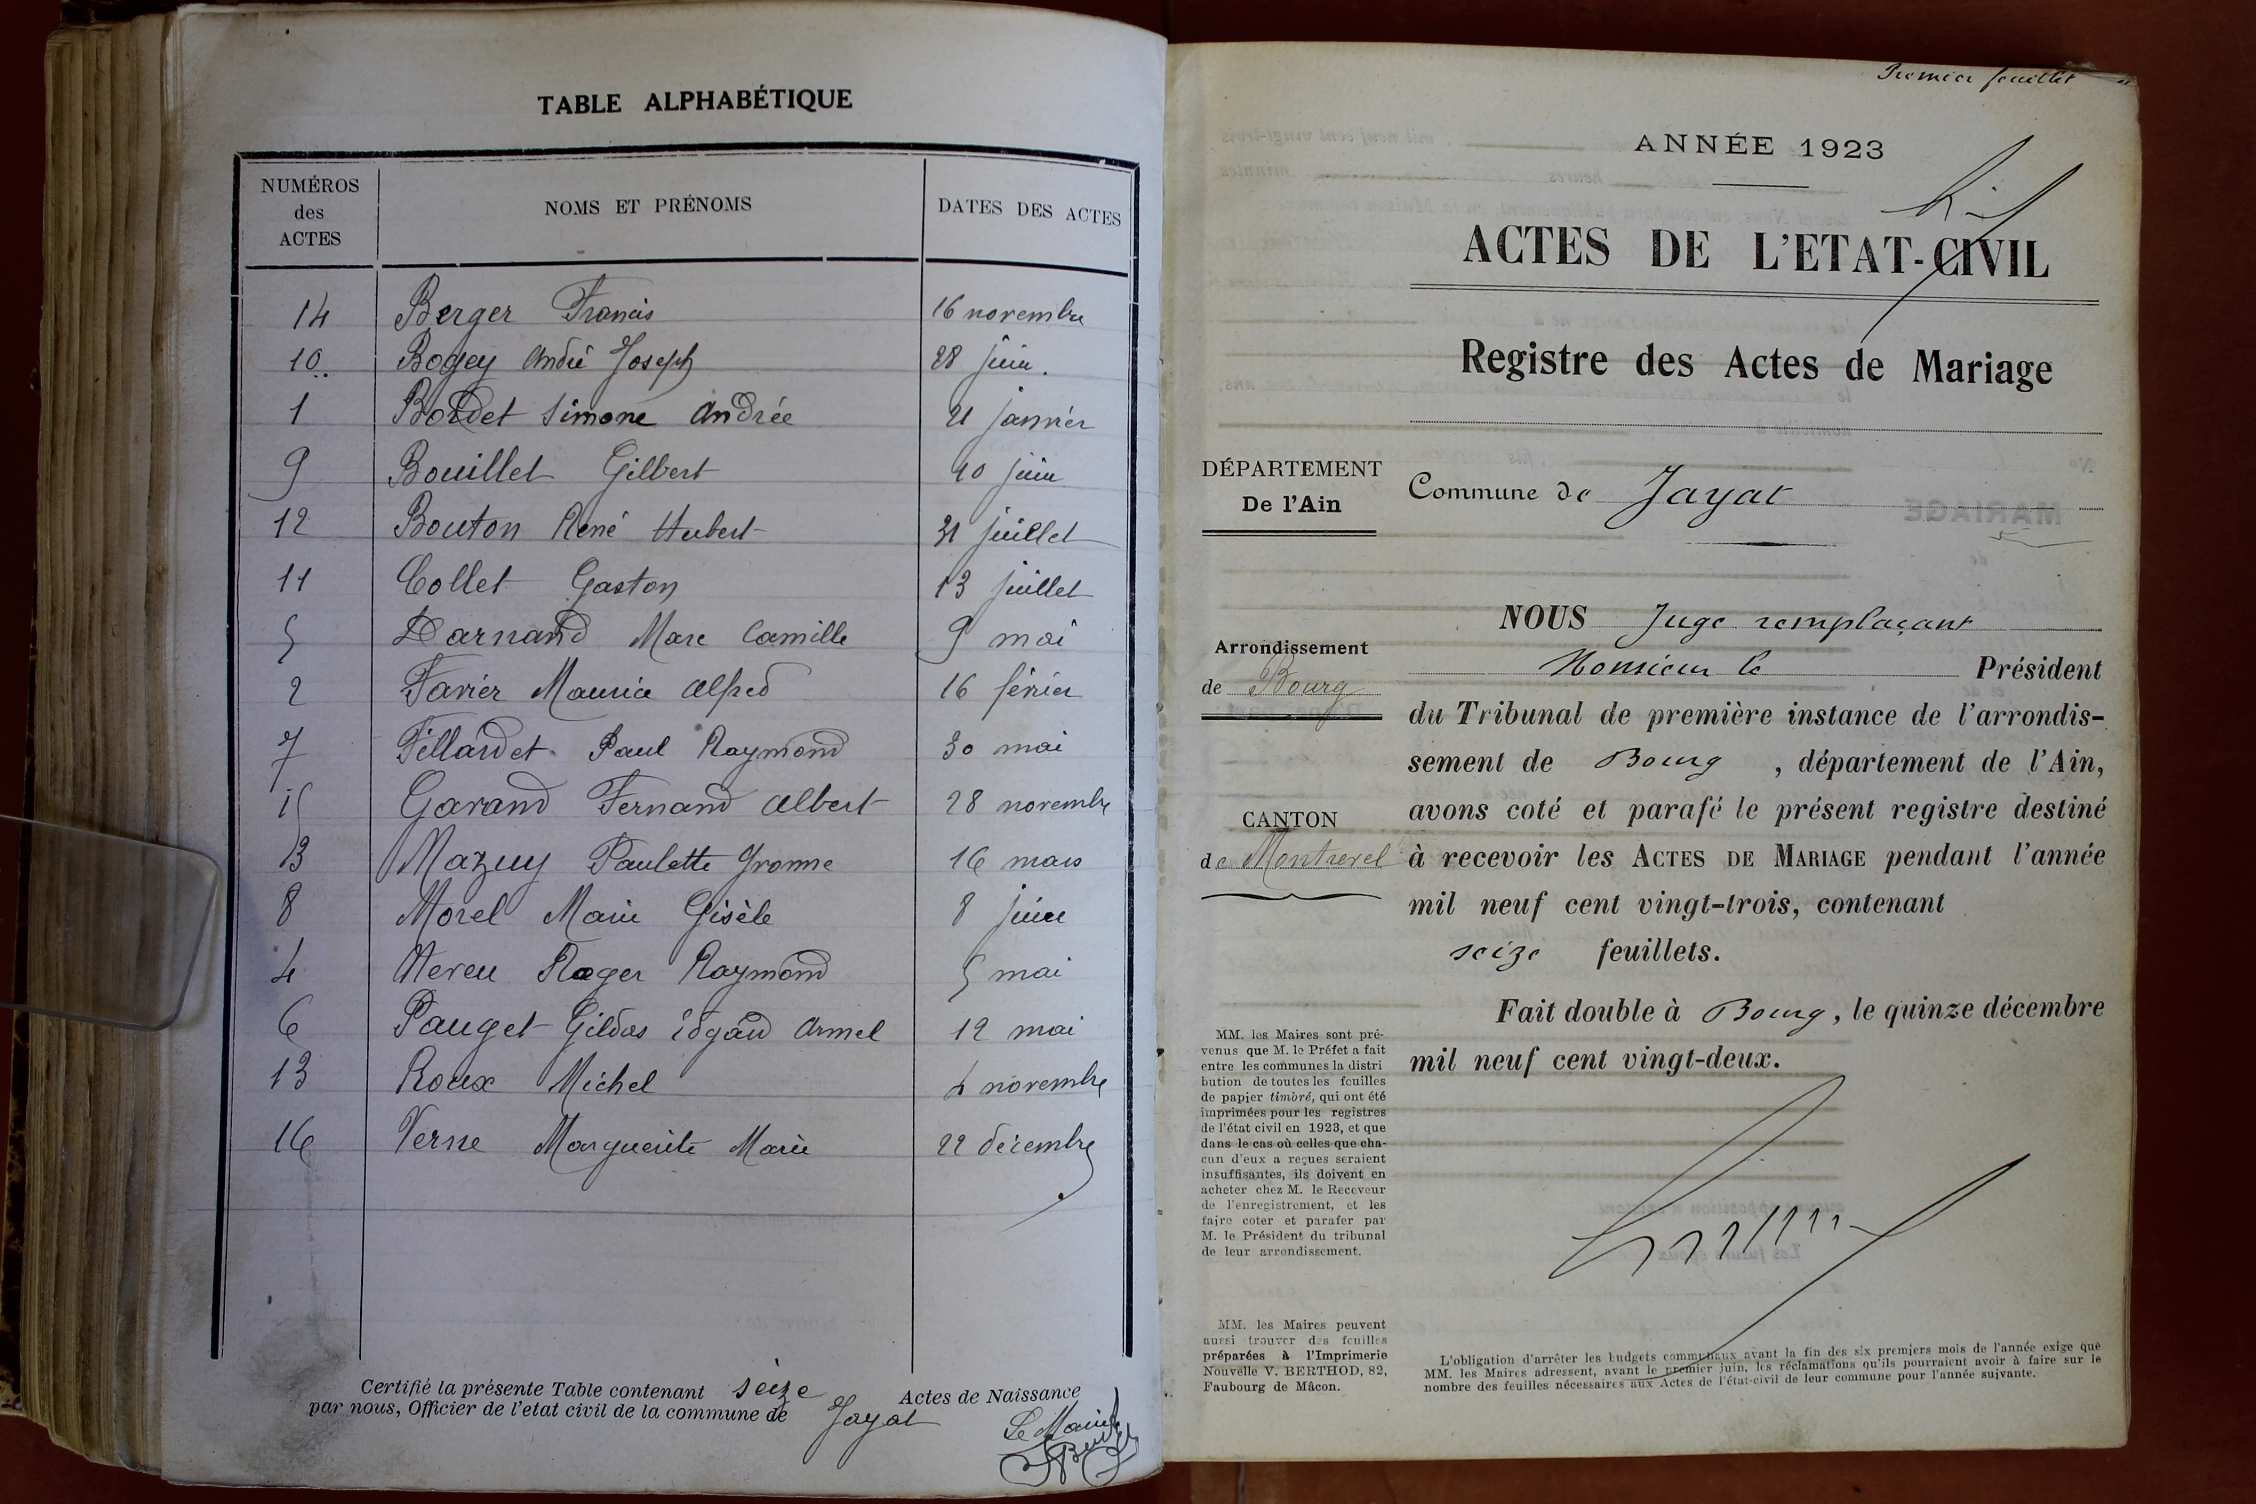 TABLE ALPHABÉTIQUE
NUMÉROS des ACTES NOMS ET PRÉNOMS DATES DES ACTES
14 Berger Francis 16 novembre
10 Bogey André Joseph 28 juin.
1 Bordet Simone Andrée 21 janvier
9 Bouillet Gilbert 10 juin
12 Bouton René Hubert 31 juillet
11 Collet Gaston 13 juillet
5 Darnand Marc Camille 9 mai
2 Favier Maurice Alfred 16 février
7 Fillardet Paul Raymond 30 mai
15 Garand Fernand Albert 28 novembre
3 Mazuy Paulette Yvonne 16 mars
8 Morel Marie Gisèle 8 juin
4 Neveu Roger Raymond 5 mai
6 Pauget Gildas Edgard Armel 12 mai
13 Roux Michel 4 novembre
16 Verne Marguerite Marie 22 décembre
Certifié la présente Table contenant seize Actes de Naissance
par nous, Officier de l'etat civil de la commune de Jayat
Le Maire
Premier feuillet
ANNÉE 1923
ACTES DE L'ETAT-CIVIL
Registre des Actes de Mariage
DÉPARTEMENT
De l'Ain
Commune de Jayat
Arrondissement
de Bourg
CANTON
de Montrevel
NOUS Juge remplaçant
Monsieur le Président
du Tribunal de première instance de l'arrondis-
sement de Bourg, département de l'Ain,
avons coté et parafé le présent registre destiné
à recevoir les ACTES DE MARIAGE pendant l'année
mil neuf cent vingt-trois, contenant
seize feuillets.
Fait double à Bourg, le quinze décembre
mil neuf cent vingt-deux.
MM. les Maires sont pré-
venus que M. le Préfet a fait
entre les communes la distri
bution de toutes les feuilles
de papier timbré, qui ont été
imprimées pour les registres
de l'état civil en 1923, et que
dans le cas où celles que cha-
cun d'eux a reçues seraient
insuffisantes, ils doivent en
acheter chez M. le Receveur
de l'enregistrement, et les
faire coter et parafer par
M. le Président du tribunal
de leur arrondissement.
MM. les Maires peuvent
aussi trouver des feuilles
préparées à l'Imprimerie
Nouvelle V. BERTHOD, 82,
Faubourg de Mâcon.
L'obligation d'arrêter les budgets communaux avant la fin des six premiers mois de l'année exige que
MM. les Maires adressent, avant le premier juin, les réclamations qu'ils pourraient avoir à faire sur le
nombre des feuilles nécessaires aux Actes de l'état-civil de leur commune pour l'année suivante.